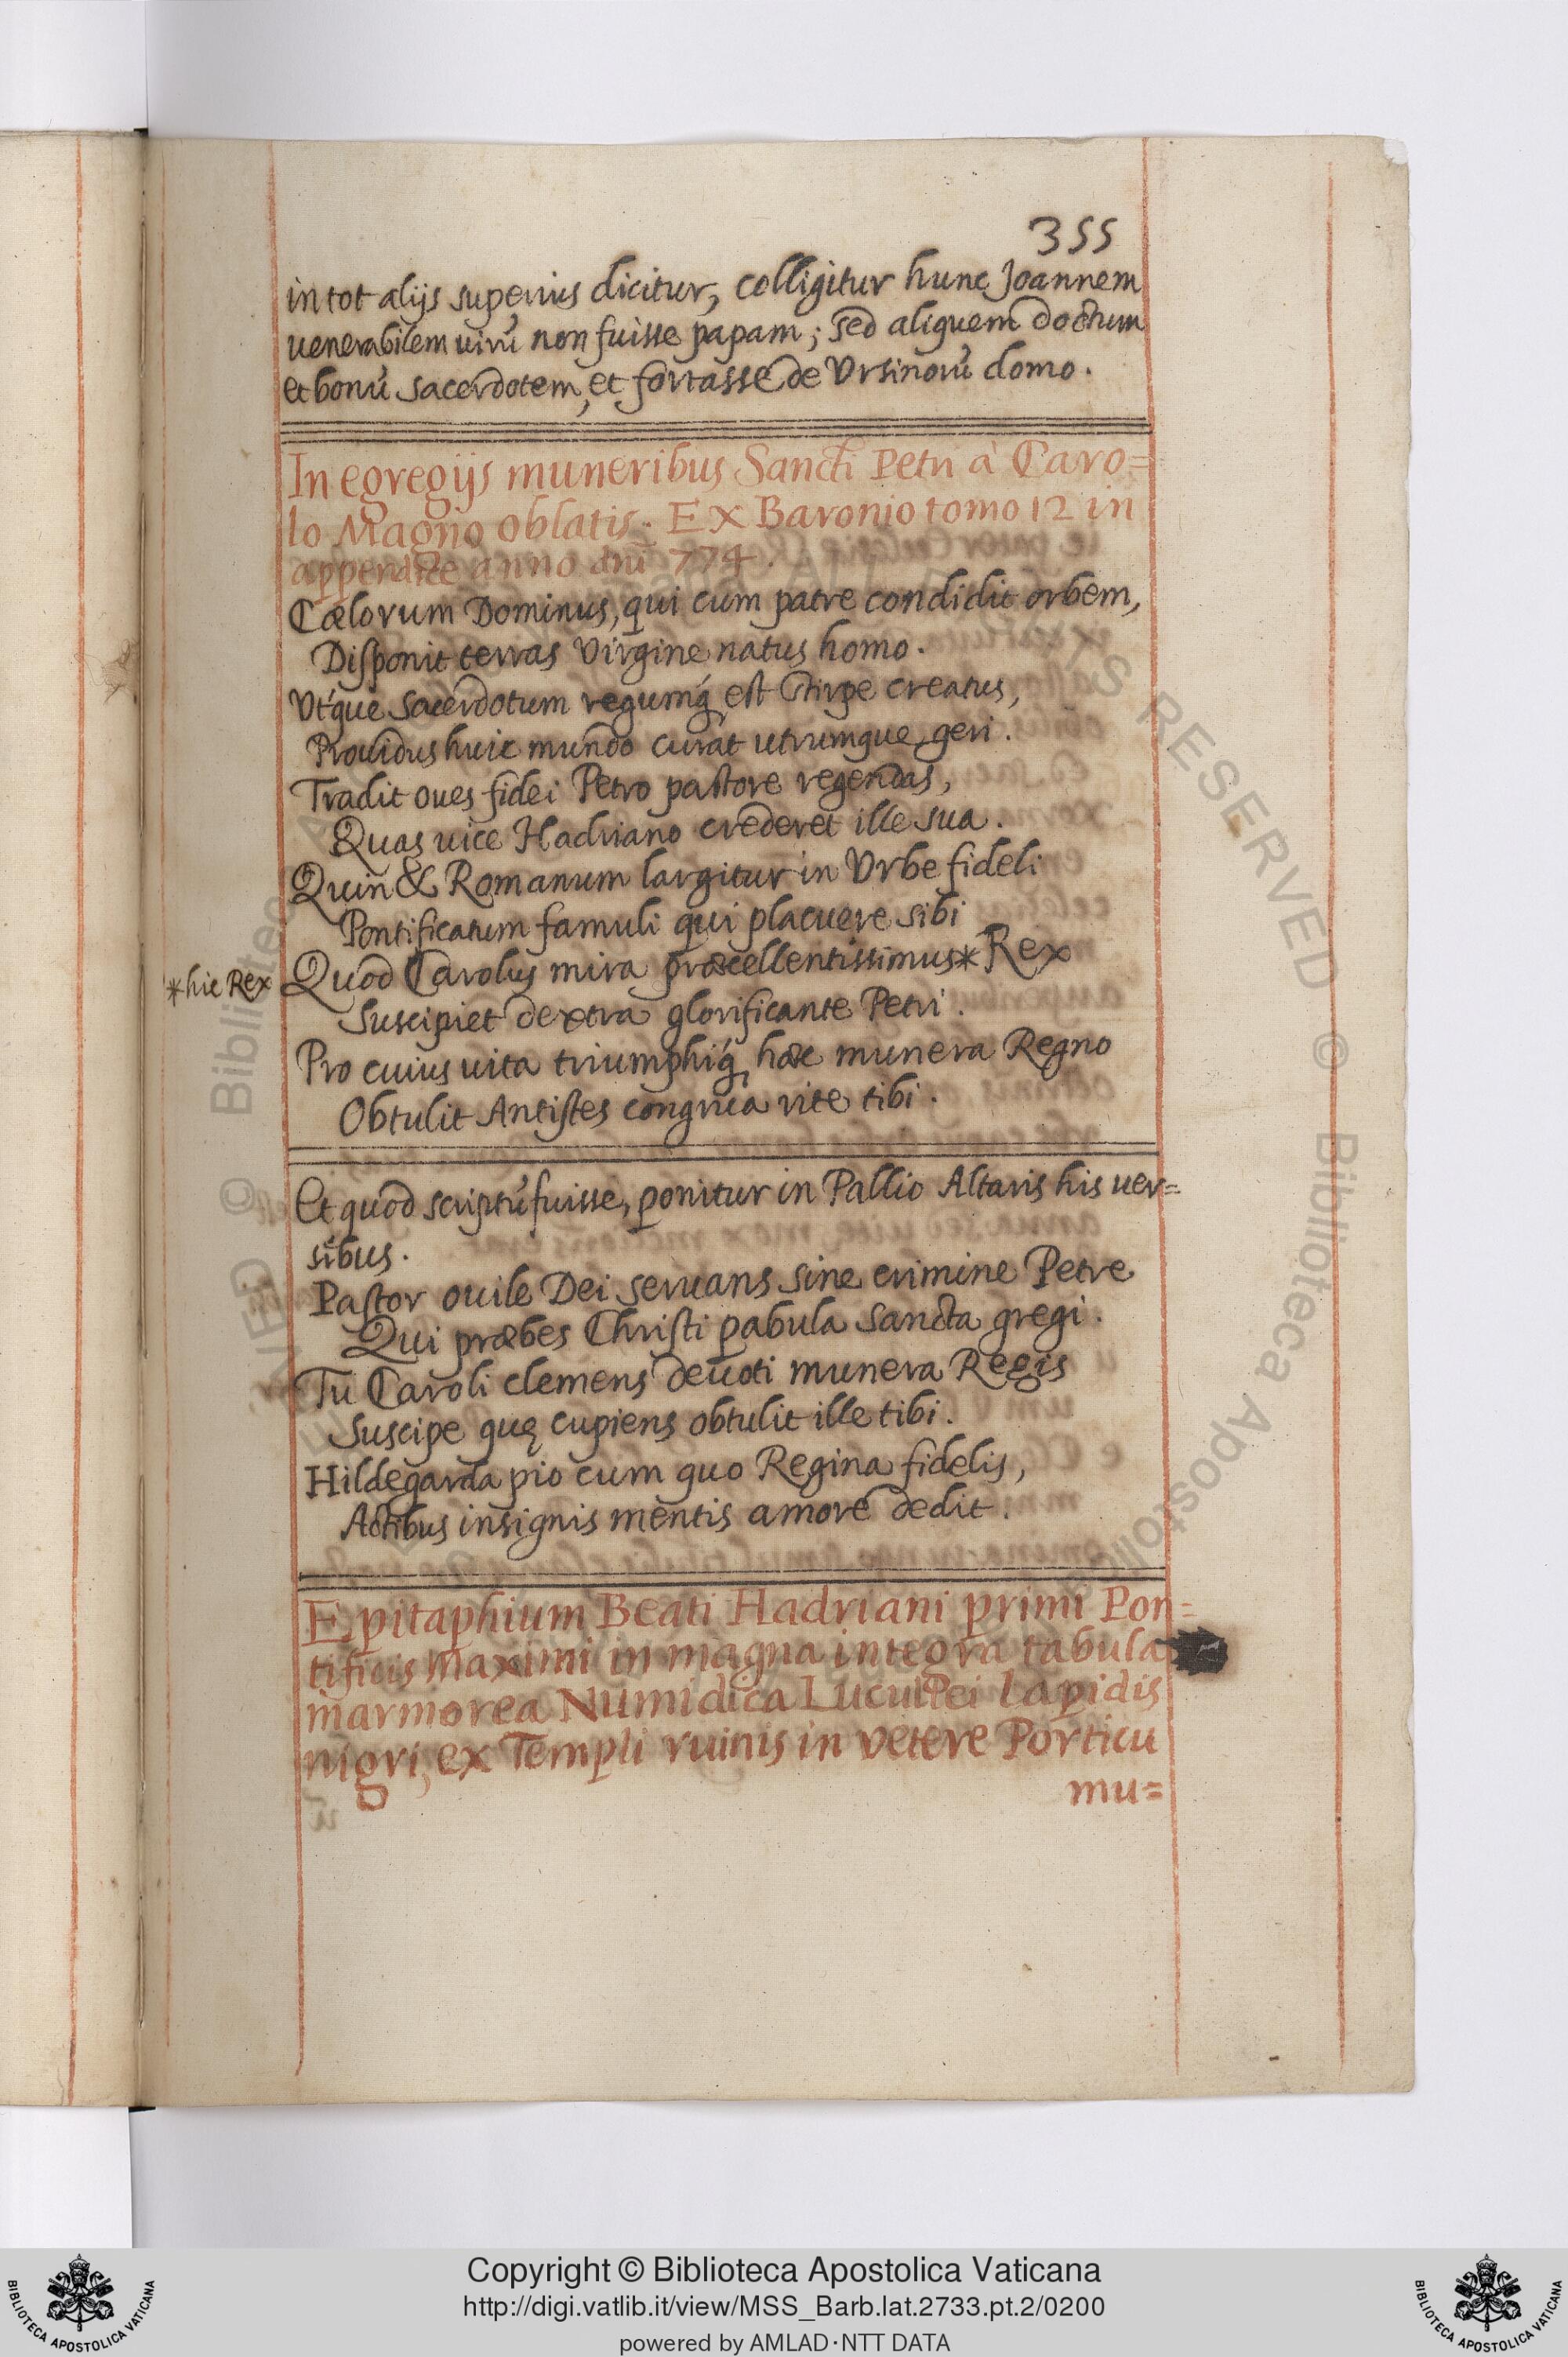 355
in tot alijs superius dicitur, colligitur hunc Joannem
uenerabilem uirũ non fuisse papam; sed aliquem doctum
et bonũ sacerdotem, et fortasse de Vrsinorũ domo.
In egregijs muneribus Sancti Petri à Caro=
lo Magno oblatis. EX Baronio tomo 12 in
appendice anno dñi 774.
Cælorum Dominus, qui cum patre condidit orbem,
Disponit terras Virgine natus homo.
Vt'que sacerdotum regumq́ est stirpe creatus,
Prouidus huic mundo curat utrumque geri.
Tradit oues fidei Petro pastore regendas,
Quas uice Hadriano crederet ille sua.
Quin & Romanum largitur in Vrbe fideli
Pontificatum famuli qui placuere sibi
*hic Rex Quod Carolus mira præcellentissimus* Rex
Suscipiet dextra glorificante Petri.
Pro cuius uita triumphiq́ hæc munera Regno
Obtulit Antistes congrua rite tibi.
Et quod scriptũ fuisse, ponitur in Pallio Altaris his uer=
sibus.
Pastor ouile Dei seruans sine crimine Petre
Qui præbes Christi pabula sancta gregi.
Tu Caroli clemens deuoti munera Regis
Suscipe quę cupiens obtulit ille tibi.
Hildegarda pio cum quo Regina fidelis,
Actibus insignis mentis amore dedit.
Epitaphium Beati Hadriani primi Pon=
tificis maximi in magna integra tabula
marmorea Numidica Lucullei lapidis
nigri, ex Templi ruinis in vetere Porticu
mu=
Copyright © Biblioteca Apostolica Vaticana
http://digi.vatlib.it/view/MSS_Barb.lat.2733.pt.2/0200
powered by AMLAD·NTT DATA
BIBLIOTECA APOSTOLICA VATICANA
BIBLIOTECA APOSTOLICA VATICANA